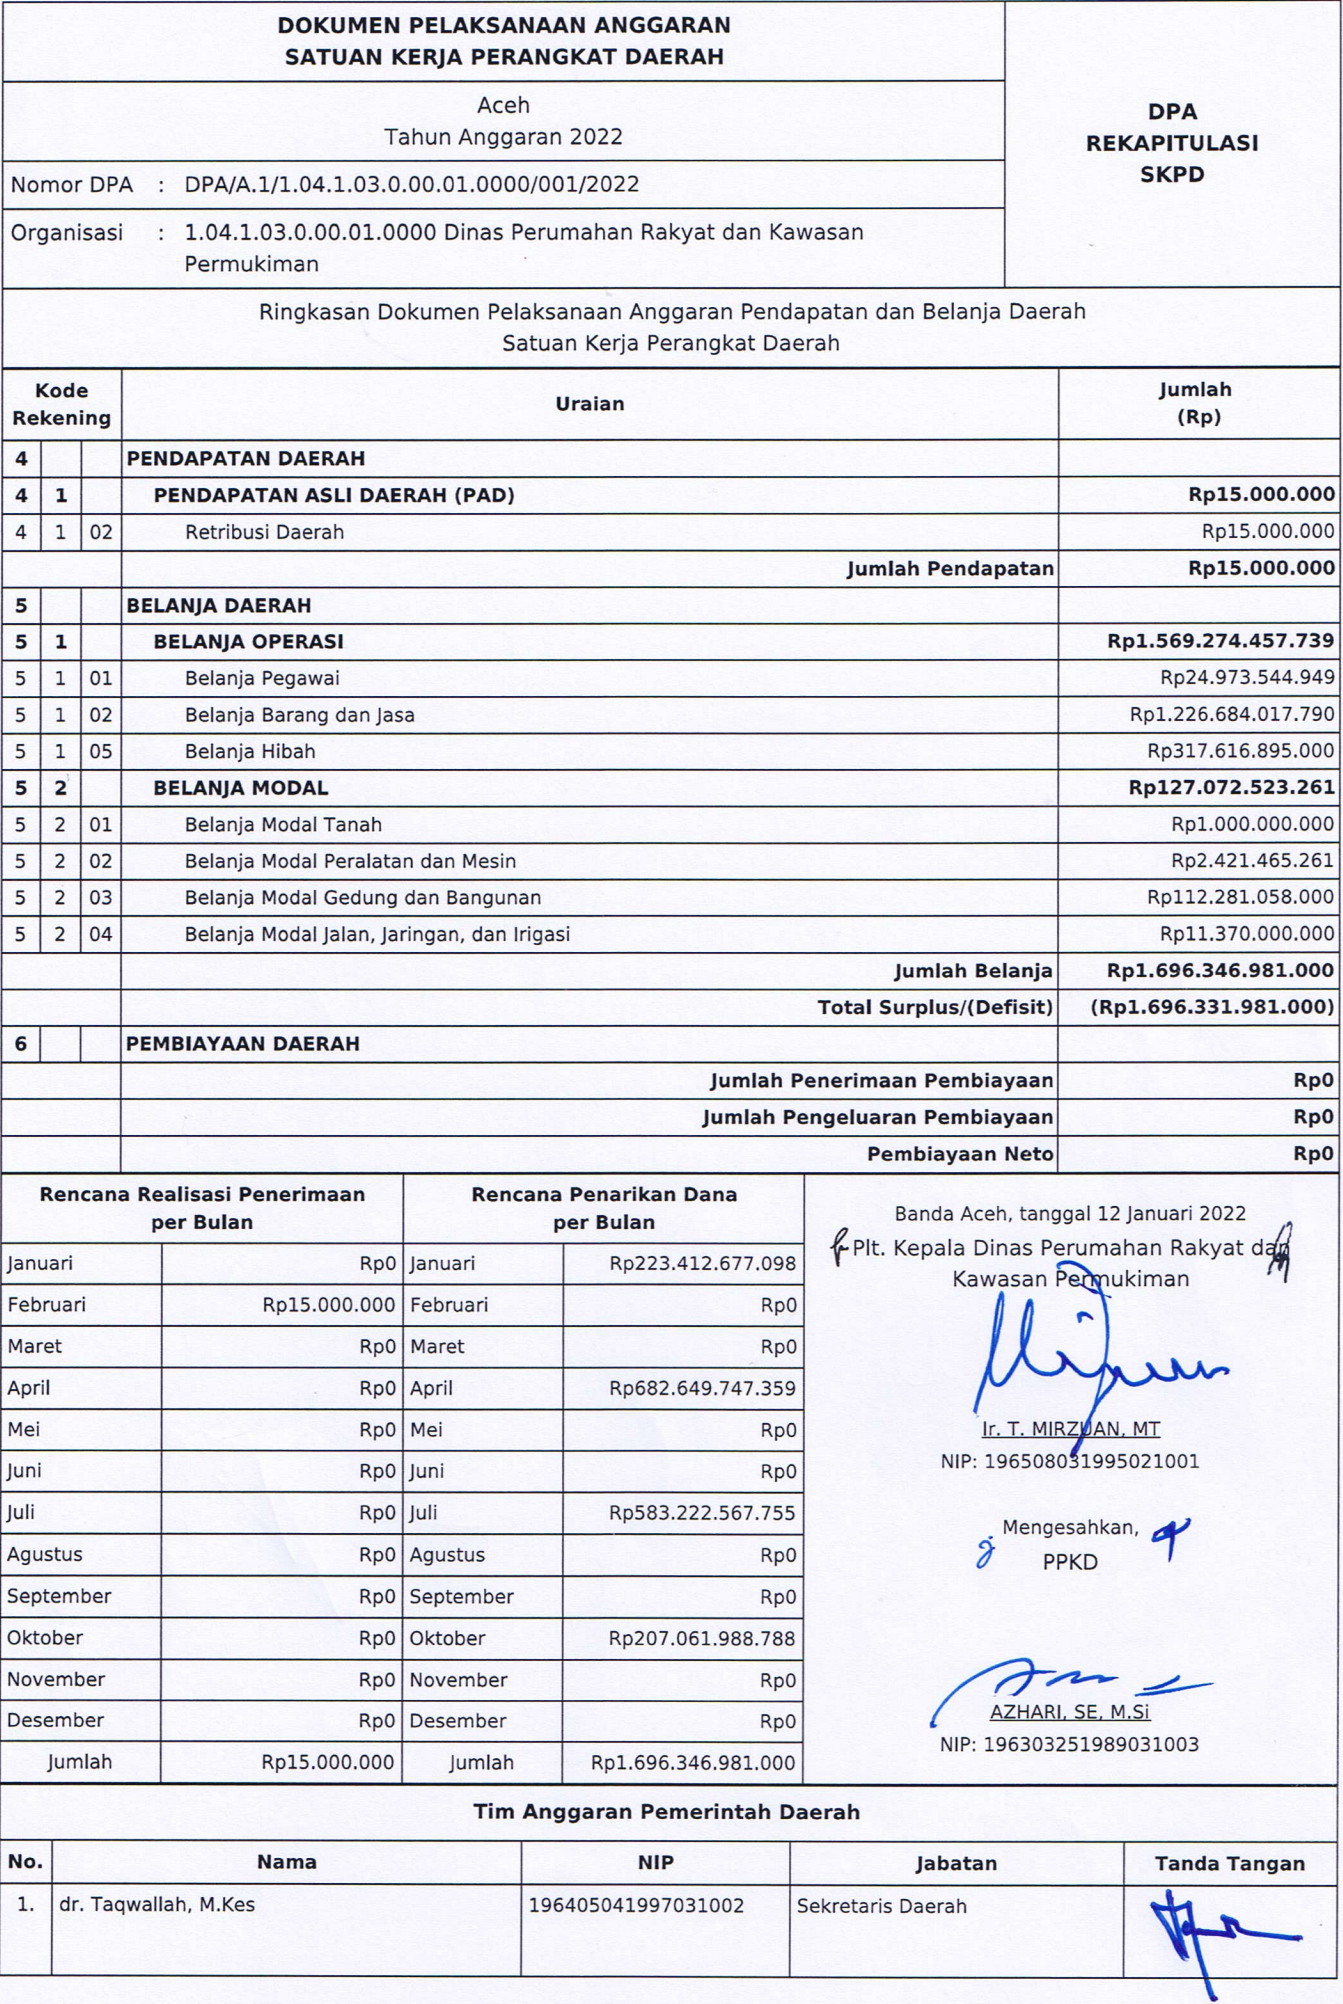 DOKUMEN PELAKSANAAN ANGGARAN
SATUAN KERJA PERANGKAT DAERAH
Aceh
Tahun Anggaran 2022
DPA
REKAPITULASI
SKPD
Nomor DPA : DPA/A.1/1.04.1.03.0.00.01.0000/001/2022
Organisasi : 1.04.1.03.0.00.01.0000 Dinas Perumahan Rakyat dan Kawasan
Permukiman
Ringkasan Dokumen Pelaksanaan Anggaran Pendapatan dan Belanja Daerah
Satuan Kerja Perangkat Daerah
Kode Rekening Uraian Jumlah (Rp)
4 PENDAPATAN DAERAH
4 1 PENDAPATAN ASLI DAERAH (PAD) Rp15.000.000
4 1 02 Retribusi Daerah Rp15.000.000
Jumlah Pendapatan Rp15.000.000
5 BELANJA DAERAH
5 1 BELANJA OPERASI Rp1.569.274.457.739
5 1 01 Belanja Pegawai Rp24.973.544.949
5 1 02 Belanja Barang dan Jasa Rp1.226.684.017.790
5 1 05 Belanja Hibah Rp317.616.895.000
5 2 BELANJA MODAL Rp127.072.523.261
5 2 01 Belanja Modal Tanah Rp1.000.000.000
5 2 02 Belanja Modal Peralatan dan Mesin Rp2.421.465.261
5 2 03 Belanja Modal Gedung dan Bangunan Rp112.281.058.000
5 2 04 Belanja Modal Jalan, Jaringan, dan Irigasi Rp11.370.000.000
Jumlah Belanja Rp1.696.346.981.000
Total Surplus/(Defisit) (Rp1.696.331.981.000)
6 PEMBIAYAAN DAERAH
Jumlah Penerimaan Pembiayaan Rp0
Jumlah Pengeluaran Pembiayaan Rp0
Pembiayaan Neto Rp0
Rencana Realisasi Penerimaan per Bulan Rencana Penarikan Dana per Bulan
Januari Rp0 Januari Rp223.412.677.098
Februari Rp15.000.000 Februari Rp0
Maret Rp0 Maret Rp0
April Rp0 April Rp682.649.747.359
Mei Rp0 Mei Rp0
Juni Rp0 Juni Rp0
Juli Rp0 Juli Rp583.222.567.755
Agustus Rp0 Agustus Rp0
September Rp0 September Rp0
Oktober Rp0 Oktober Rp207.061.988.788
November Rp0 November Rp0
Desember Rp0 Desember Rp0
Jumlah Rp15.000.000 Jumlah Rp1.696.346.981.000
Banda Aceh, tanggal 12 Januari 2022
Plt. Kepala Dinas Perumahan Rakyat dan
Kawasan Permukiman
Ir. T. MIRZUAN, MT
NIP: 196508031995021001
Mengesahkan,
PPKD
AZHARI, SE, M.Si
NIP: 196303251989031003
Tim Anggaran Pemerintah Daerah
No. Nama NIP Jabatan Tanda Tangan
1. dr. Taqwallah, M.Kes 196405041997031002 Sekretaris Daerah